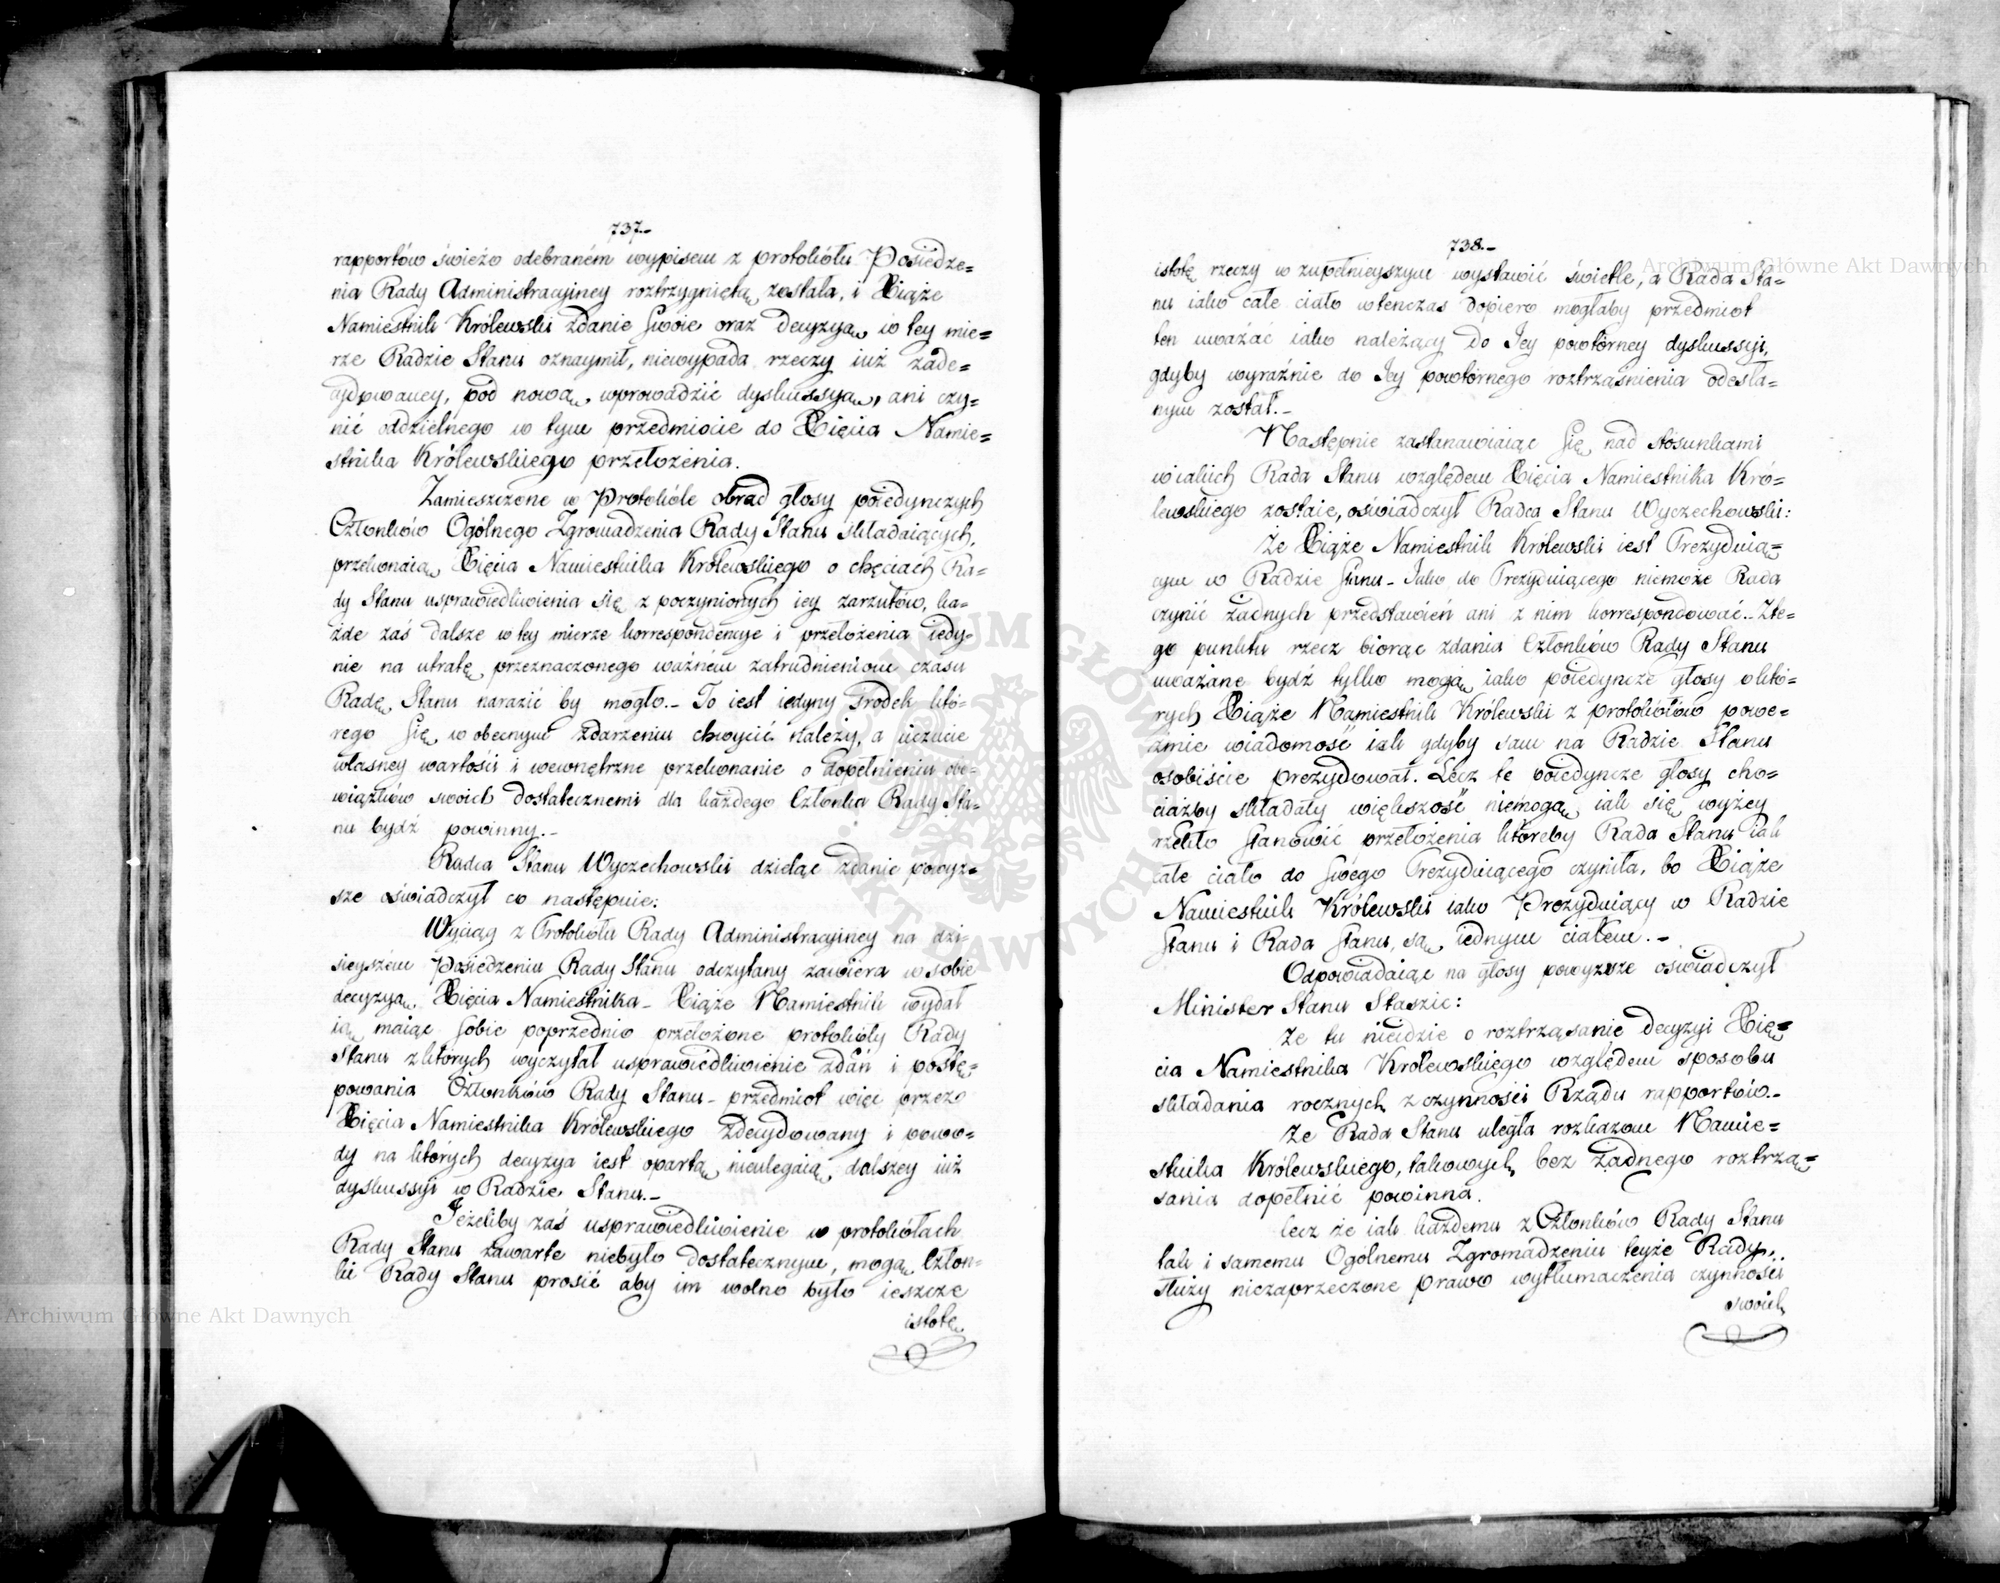 737.-
rapportów świeżo odebraném wypisem z protokółu Posiedze=
nia Rady Administracyiney roztrzygniętą została, i Xiąże
Namiestnik Królewski zdanie Swoie oraz decyzyą w tey mie=
rze Radzie Stanu oznaymił, niewypada rzeczy iuż zade=
cydowaney, pod nową wprowadzić dyskussyą, ani czy=
nić oddzielnego w tym przedmiocie do Xięcia Namie=
stnika Królewskiego przełożenia.
Zamieszczone w Protokóle obrad głosy poiedynczych
Członków Ogólnego Zgromadzenia Rady Stanu składaiących,
przekonaią Xięcia Namiestnika Królewskiego o chęciach Ra=
dy Stanu usprawiedliwienia się z poczynionych iey zarzutów, ka=
żde zaś dalsze w tey mierze korrespondencye i przełożenia iedy=
nie na utratę przeznaczonego ważném zatrudnieniom czasu
Radę Stanu narazić by mogło.- To iest iedyny środek któ=
rego Się w obecnym zdarzeniu chwycić należy, a uczucie
własney wartości i wewnętrzne przekonanie o dopełnieniu obo=
wiązków swoich dostatecznemi dla każdego Członka Rady Sta=
nu bydź powinny.-
Radca Stanu Wyczechowski dzieląc zdanie powyż=
sze oświadczył co następuie:
Wyciąg z Protokółu Rady Administracyiney na dzi=
sieyszém Posiedzeniu Rady Stanu odczytany zawiera w sobie
decyzyą Xięcia Namiestnika - Xiąże Namiestnik wydał
ią maiąc Sobie poprzednio przełożone protokóły Rady
Stanu z których wyczytał usprawiedliwienie zdań i postę=
powania Członków Rady Stanu - przedmiot więc przez
Xięcia Namiestnika Królewskiego zdecydowany i powo=
dy na których decyzya iest opartą nieulegaią dalszey iuż
dyskussyi w Radzie Stanu.-
Jeżeliby zaś usprawiedliwienie w protokółach
Rady Stanu zawarte niebyło dostatecznym, mogą Człon=
ki Rady Stanu prosić aby im wolno było ieszcze
istotę
738.-
istotę rzeczy w zupełnieyszym wystawić świetle, a Rada Sta=
nu iako całe ciało wtenczas dopiero mogłaby przedmiot
ten uważać iako należący do Jey powtórney dyskussyi,
gdyby wyraźnie do Jey powtórnego roztrząśnienia odesła=
nym został.-
Następnie zastanawiaiąc Się nad stosunkami
w iakich Rada Stanu względem Xięcia Namiestnika Kró=
lewskiego zostaie, oświadczył Radca Stanu Wyczechowski:
Że Xiąże Namiestnik Królewski iest Prezyduią=
cym w Radzie Stanu - Jako do Prezyduiącego niemoże Rada
czynić żadnych przedstawień ani z nim korrespondować.. Z te=
go punktu rzecz biorąc zdania Członków Rady Stanu
uważane bydź tylko mogą iako poiedyncze głosy o któ=
rych Xiąże Namiestnik Królewski z protokółów powe=
źmie wiadomość iak gdyby sam na Radzie Stanu
osobiście prezydował. Lecz te poiedyncze głosy cho=
ciażby składały większość niemogą iak się wyżey
rzekło Stanowić przełożenia któreby Rada Stanu iak
całe ciało do Swego Prezyduiącego czyniła, bo Xiąże
Namiestnik Królewski iako Prezyduiący w Radzie
Stanu i Rada Stanu, są iednym ciałem.-
Odpowiadaiąc na głosy powyższe oświadczył
Minister Stanu Staszic:
Że tu nieidzie o roztrząsanie decyzyi Xię=
cia Namiestnika Królewskiego względem sposobu
składania rocznych z czynności Rządu rapportów.-
Że Rada Stanu uległa rozkazom Namie=
stnika Królewskiego, takowych bez żadnego roztrzą=
sania dopełnić powinna.
lecz że iak każdemu z Członków Rady Stanu
tak i samemu Ogólnemu Zgromadzeniu teyże Rady,
służy niezaprzeczone prawo wytłumaczenia czynności
swoich
Archiwum Główne Akt Dawnych
Archiwum Główne Akt Dawnych
ARCHIWUM GŁÓWNE AKT DAWNYCH